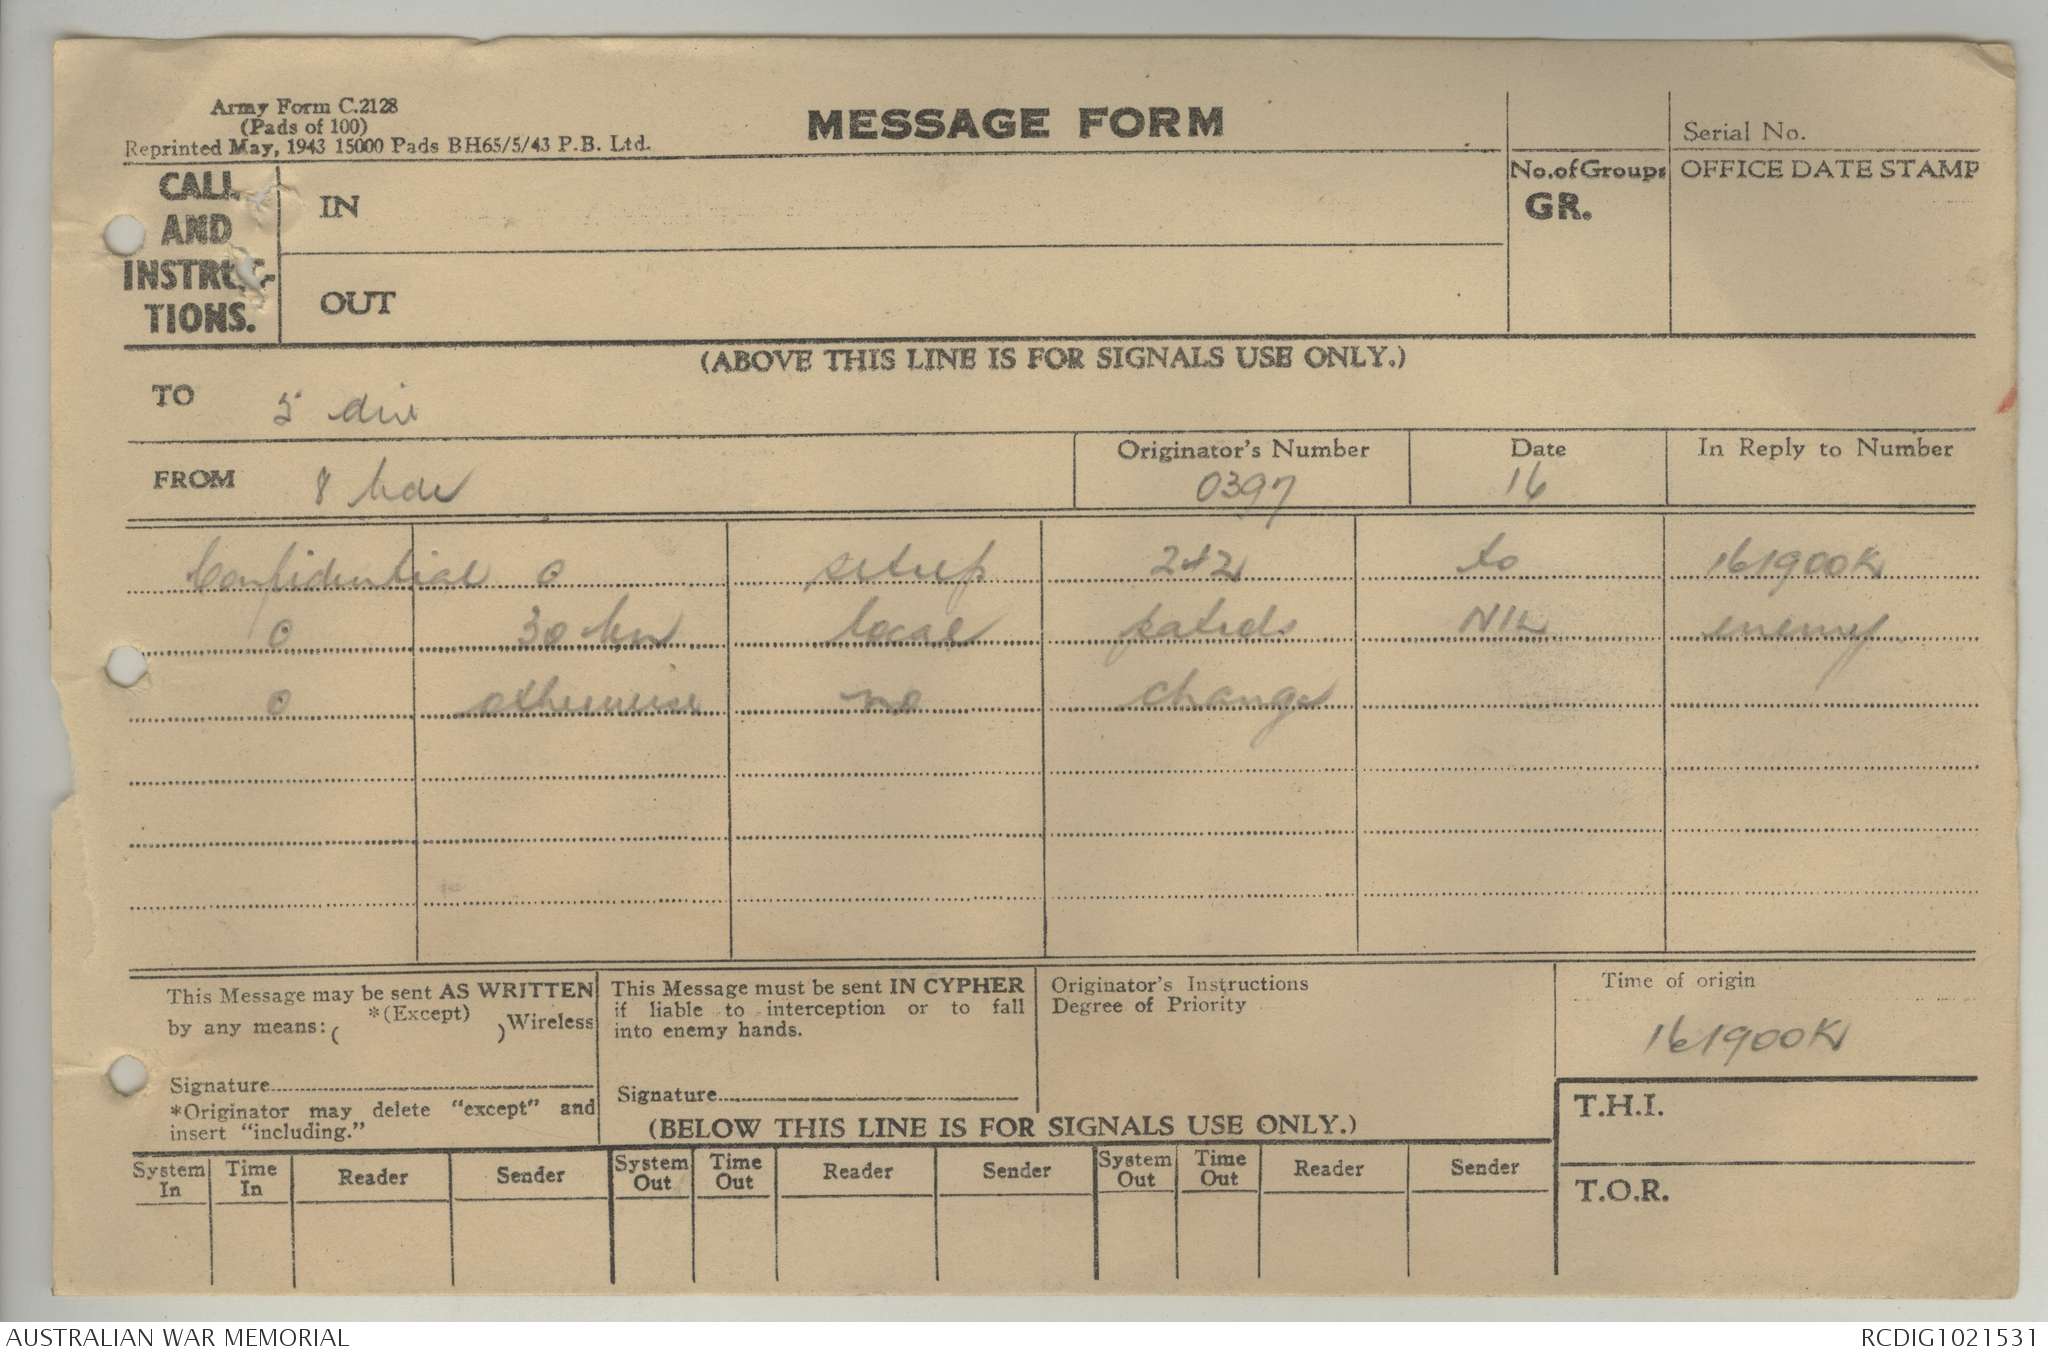 Army Form C.2128
(Pads of 100)
Reprinted May, 1943 15000 Pads BH65/5/43 P.B. Ltd.
MESSAGE FORM
Serial No.
CALL AND INSTRUC-TIONS.
IN
OUT
No. of Groups
GR.
OFFICE DATE STAMP
(ABOVE THIS LINE IS FOR SIGNALS USE ONLY.)
TO 5 div
FROM 8 bde
Originator's Number
0397
Date
16
In Reply to Number
Confidential o setrep 242 to 161900K
o 30 bn local patrols NIL enemy
o otherwise no change
This Message may be sent AS WRITTEN
by any means: ( *(Except) ) Wireless
Signature
*Originator may delete "except" and
insert "including."
This Message must be sent IN CYPHER
if liable to interception or to fall
into enemy hands.
Signature
Originator's Instructions
Degree of Priority
Time of origin
161900K
(BELOW THIS LINE IS FOR SIGNALS USE ONLY.)
T.H.I.
T.O.R.
System In Time In Reader Sender System Out Time Out Reader Sender System Out Time Out Reader Sender
AUSTRALIAN WAR MEMORIAL
RCDIG1021531